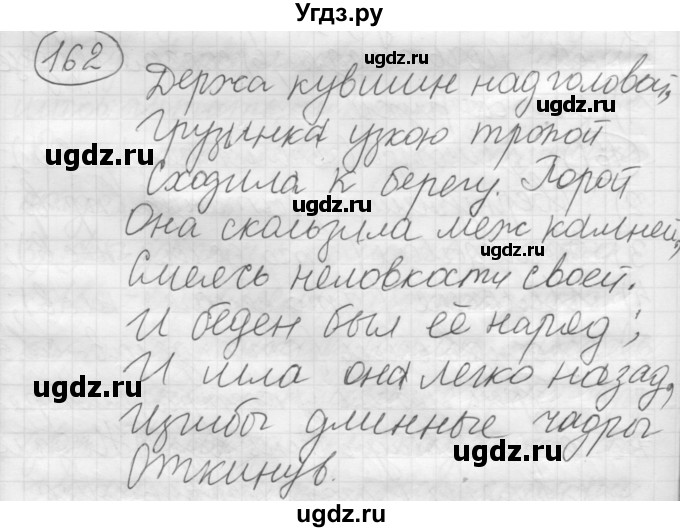 Угдз.ру
162
ugdz.ru
Держа кувшин над головой,
ugdz.ru
Грузинка узкою тропой
ugdz.ru
Сходила к берегу. Порой
ugdz.ru
Она скользила меж камней,
ugdz.ru
Смеясь неловкости своей.
И беден был её наряд;
ugdz.ru
И шла она легко назад,
ugdz.ru
Изгибы длинные чадры
ugdz.ru
Откинув.
ugdz.ru
ugdz.ru